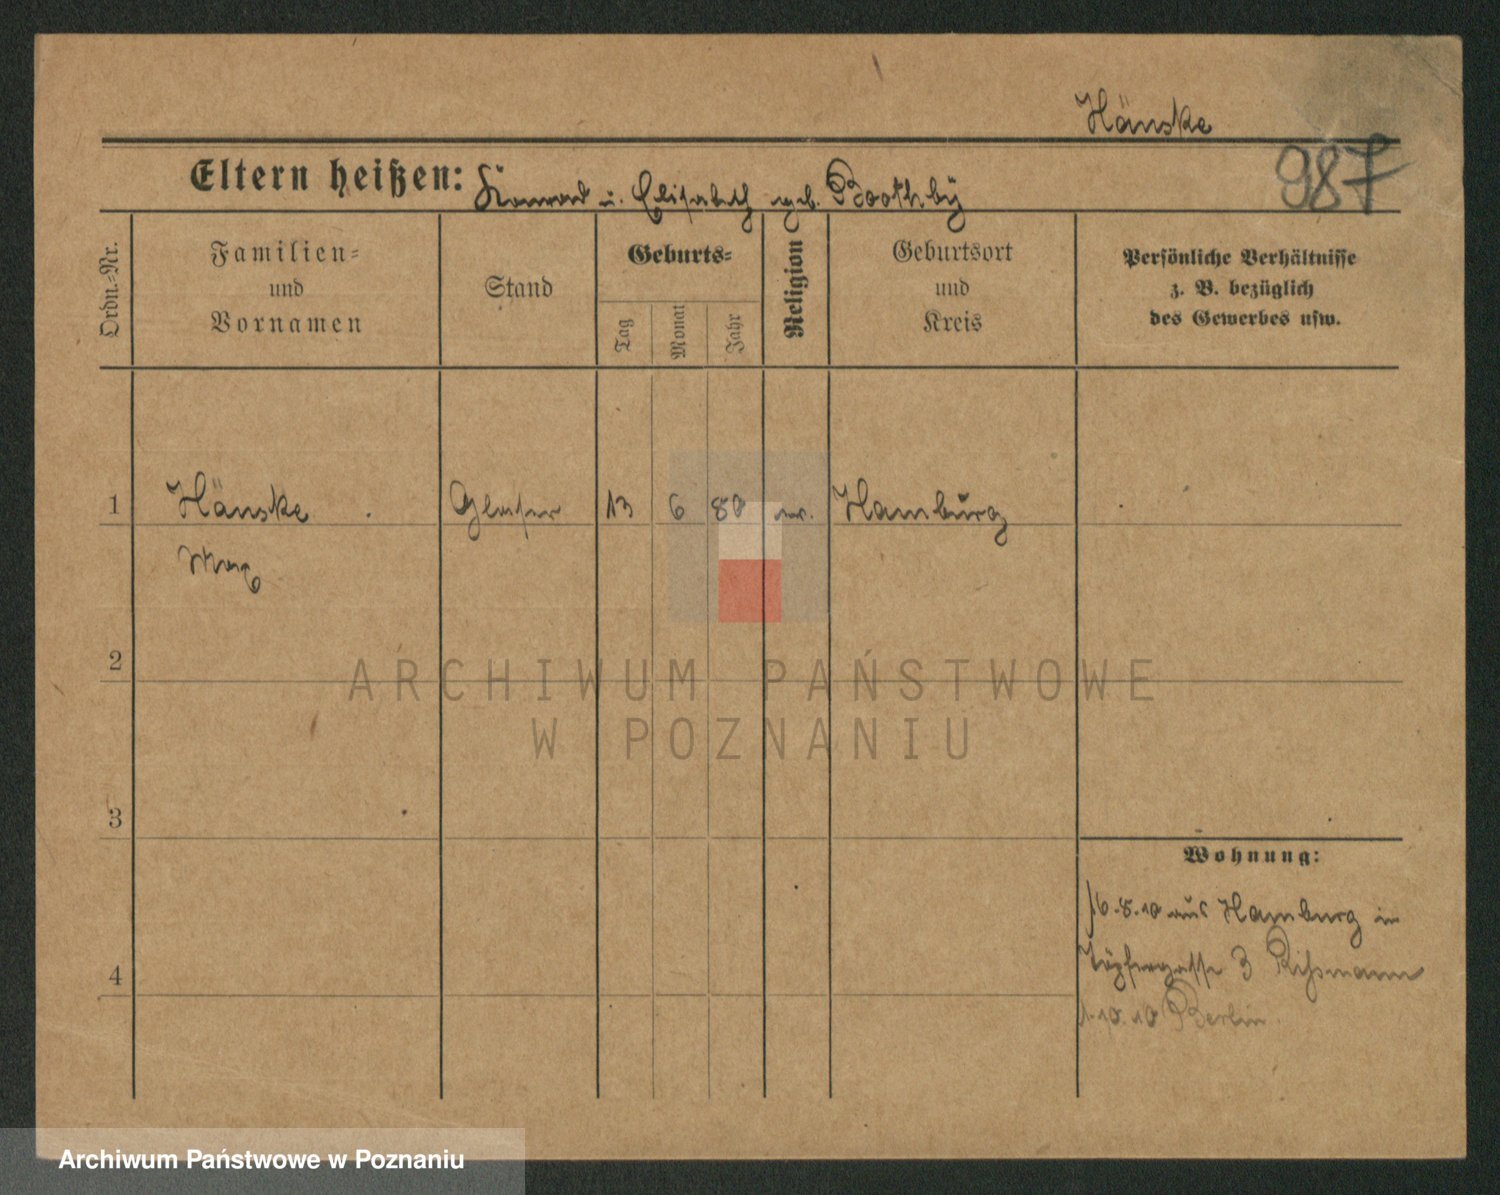 Hänske
987
Eltern heißen: Konrad u. Elisabeth geb. Boothby
Ordn.-Nr.
Familien-
und
Vornamen
Stand
Geburts-
Tag
Monat
Jahr
Religion
Geburtsort
und
Kreis
Persönliche Verhältnisse
z. B. bezüglich
des Gewerbes usw.
1 Hänske Glaser 13 6 80 ev. Hamburg
Max
2
ARCHIWUM PAŃSTWOWE
W POZNANIU
3
Wohnung:
16.8.10 aus Hamburg in
4
Töpfergasse 3 Rißmann
1.10.10 Berlin.
Archiwum Państwowe w Poznaniu